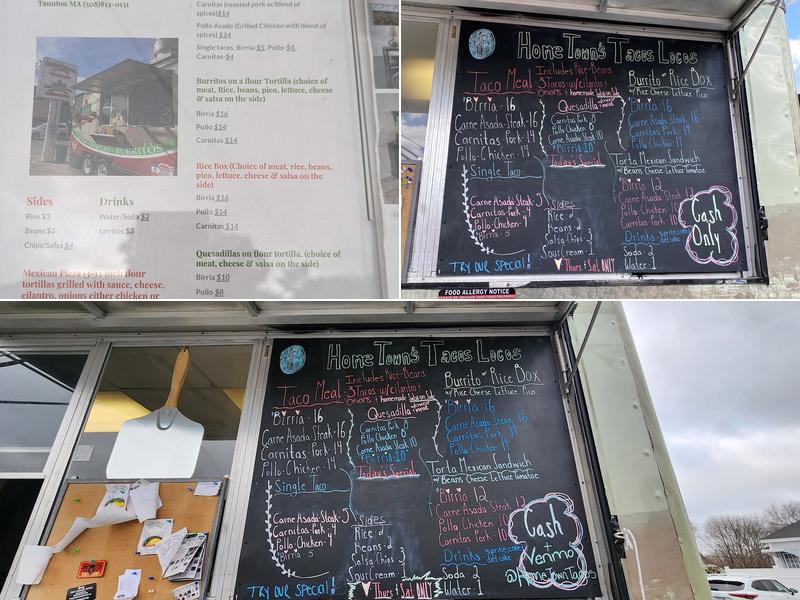 Taunton MA (508)813-0131
Sides
Rice $3
Beans $3
Chips/Salsa $4
Drinks
Water/Soda $2
Jarritos $3
Mexican Pizza
tortillas grilled with sauce, cheese,
cilantro, onions either chicken or
Carnitas (roasted pork w/blend of
spices)$14
Pollo Asado (Grilled Chicken with blend of
spices) $14
Single tacos, Birria-$5, Pollo-$4,
Carnitas-$4
Burritos on a flour Tortilla (choice of
meat, Rice, beans, pico, lettuce, cheese
& salsa on the side)
Birria $16
Pollo $14
Carnitas $14
Rice Box (Choice of meat, rice, beans,
pico, lettuce, cheese & salsa on the
side)
Birria $16
Pollo $14
Carnitas $14
Quesadillas on flour tortilla. (choice of
meat, cheese & salsa on the side)
Birria $10
Pollo $8
Home Town's Tacos Locos
Taco Meal
Includes Rice-Beans
3 Tacos-w/cilantro+
onions + homemade
Birria-16
Carne Asada Steak-16
Carnitas Pork-14
Pollo-Chicken-14
Single Taco
Carne Asada Steak 5
Carnitas-Pork-4
Pollo-Chicken-4
Birria-5
Try our Special!
Quesadilla
Carnitas Pork 8
Pollo Chicken 8
Carne Asada Steak 10
Birria-10
Today's Special
Sides
Rice-2
Beans-2
Salsa-Chips 3
Sour Cream-1
Thurs + Sat ONLY
Burrito or Rice Box
w/ Rice Cheese Lettuce Pico
Birria 16
Carne Asada Steak 16
Carnitas Pork 14
Pollo Chicken 14
Torta Mexican Sandwich
w/ Beans Cheese Lettuce Tomatoe
Birria 12
Carne Asada Steak 12
Pollo-Chicken 10
Carnitas Pork 10
Drinks
Soda-2
Water-1
Cash
Only
FOOD ALLERGY NOTICE
Home Town's Tacos Locos
Taco Meal
Includes Rice-Beans
3 Tacos-w/cilantro+
onions + homemade
Birria-16
Carne Asada Steak-16
Carnitas Pork-14
Pollo-Chicken-14
Single Taco
Carne Asada Steak-5
Carnitas-Pork-4
Pollo-Chicken-4
Birria-5
Try our Special!
Quesadilla
Carnitas Pork 8
Pollo Chicken 8
Carne Asada Steak 10
Birria-10
Today's Special
Sides
Rice-2
Beans-2
Salsa-Chips 3
Sour Cream-1
Thurs + Sat ONLY
Burrito or Rice Box
w/ Rice Cheese Lettuce Pico
Birria 16
Carne Asada Steak 16
Carnitas-Pork 14
Pollo Chicken 14
Torta Mexican Sandwich
w/ Beans Cheese Lettuce Tomatoe
Birria-12
Carne Asada Steak 12
Pollo-Chicken 10
Carnitas Pork 10
Drinks
Soda-2
Water-1
Cash
+
Venmo
@HomeTownTacos